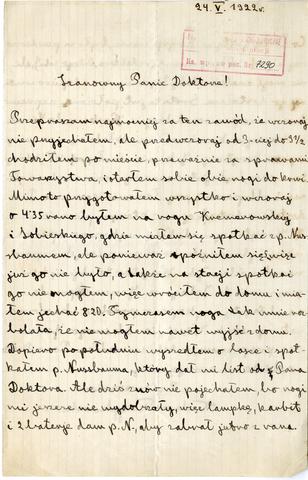 24. V. 1922 r.
7290
Szanowny Panie Doktorze!
Przepraszam najmocniej za ten zawód, że wczoraj
nie przyjechałem, ale przedwczoraj od 3-ciej do 9½
chodziłem po mieście, przeważnie za sprawami
Towarzystwa, i starłem sobie obie nogi do krwi.
Mimoto przygotowałem wszystko i wczoraj
o 4:35 rano byłem na rogu
i Sobieskiego, gdzie miałem się spotkać z p. Nus-
baumem, ale ponieważ spóźniłem się więc
już go nie było, a także na stacji spotkać
go nie mogłem, więc wróciłem do domu i mia-
łem jechać 8 20. Tymczasem noga tak mnie roz-
bolała, że nie mogłem nawet wyjść z domu.
Dopiero po południu wyszedłem o lasce i spot-
kałem p. Nusbauma, który dał mi list od Pana
Doktora. Ale dziś znów nie pojechałem, bo nogi
mi jeszcze nie wydobrzały, więc lampkę, karbit
i 2 baterje dam p. N., aby zabrał jutro z rana.